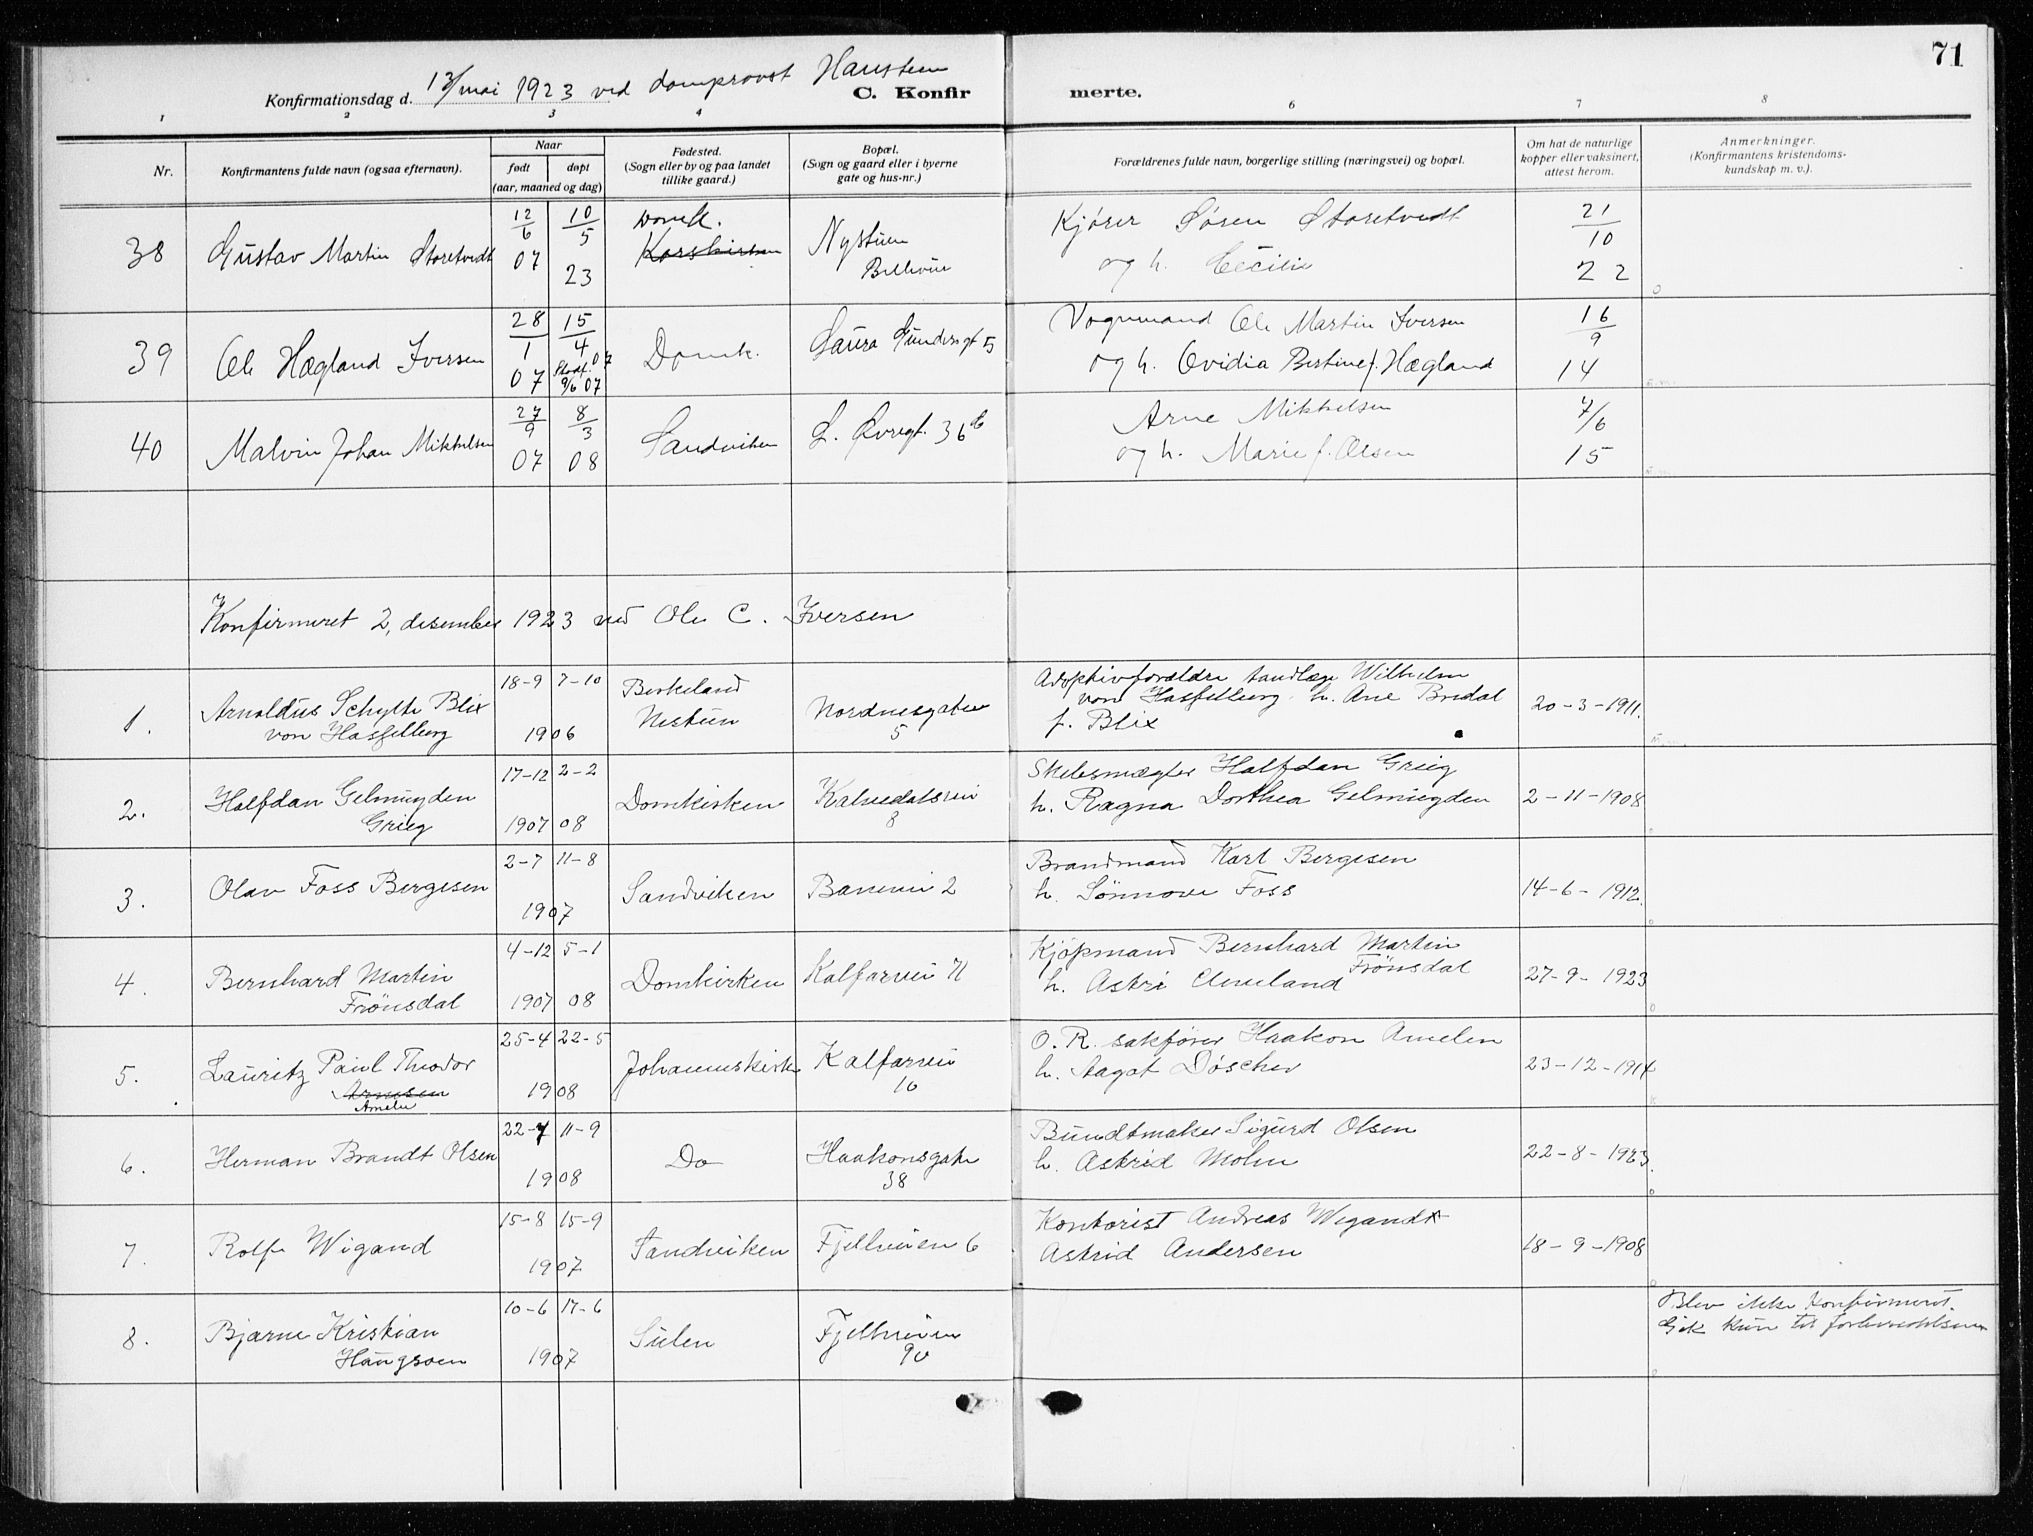 71
Konfirmationsdag d. 13/mai 1923 ved domprovst Hansteen
C. Konfir merte.
1 2 3 4 6 7 8
Nr.
Konfirmantens fulde navn (ogsaa efternavn).
Naar
født døpt
(aar, maaned og dag)
Fødested.
(Sogn eller by og paa landet
tillike gaard.)
Bopæl.
(Sogn og gaard eller i byerne
gate og hus-nr.)
Forældrenes fulde navn, borgerlige stilling (næringsvei) og bopæl.
Om hat de naturlige
kopper eller vaksinert,
attest herom.
Anmerkninger.
(Konfirmantens kristendoms-
kundskap m. v.).
38 Gustav Martin Storetvedt
12/6 07
10/5 23
Domk.
Korskirken
Nystuen
Bellevue
Kjører Søren Storetvedt
og h. Cecilie
21/10
22
39 Ole Hægland Iversen
28/1 07
15/4 07
9/6 07
Domk.
Laura Gundersgt 5
Vognmand Ole Martin Iversen
og h. Ovidia Bertine f. Hægland
16/9
14
40 Malvin Johan Mikkelsen
27/9 07
8/3 08
Sandviken
L. Øvregt. 36 b
Arne Mikkelsen
og h. Marie f. Olsen
7/6
15
Konfirmeret 2, desember 1923 ved Ole C. Iversen
1. Arnoldus Schytte Blix
von Hasselberg
18-9 7-10
1906
Birkeland
Nestun
Nordnesgaten
5
Adoptivforældre tandlæge Wilhelm
von Hasselberg. h. Ane Bredal
f. Blix
20-3-1911.
2. Halfdan Gelmuyden
Grieg
17-12 2-2
1907 08
Domkirken
Kalvedalsvei
8
Skibsmægler Halfdan Grieg
h. Ragna Dorthea Gelmuyden
2-11-1908
3. Olav Foss Bergesen
2-7 11-8
1907
Sandviken
Banevei 2
Brandmand Karl Bergesen
h. Sønnove Foss
14-6-1912.
4. Bernhard Martin
Frønsdal
4-12 5-1
1907 08
Domkirken
Kalfarvei 71
Kjøpmand Bernhard Martin
Frønsdal
h. Astri Cleveland
27-9-1923
5. Lauritz Paul Theodor
Arnesen
Ameln
25-4 22-5
1908
Johanneskirke
Kalfarvei
16
O. R. sakfører Haakon Amelen
h. Aagot Døscher
23-12-1914
6. Herman Brandt Olsen
22-7 11-9
1908
Do
Haakonsgate
38
Bundtmaker Sigurd Olsen
h. Astrid Mohn
22-8-1923.
7. Rolf Wigand
15-8 15-9
1907
Sandviken
Fjellveien 6
Kontorist Andreas Wigandt
Astrid Andersen
18-9-1908
8. Bjarne Kristian
Haugsoen
10-6 17-6
1907
Sulen
Fjellveien
90
Blev ikke konfirmeret.
Gik kun til forberedelsen